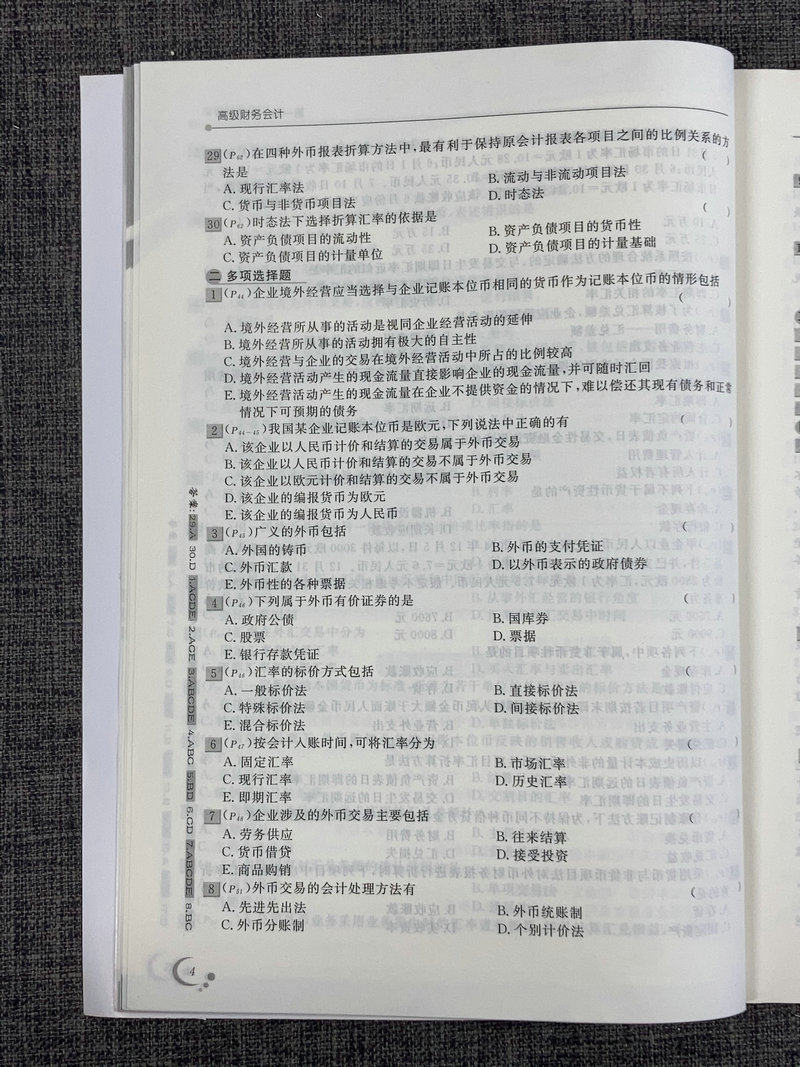 高级财务会计
29 (P62)在四种外币报表折算方法中,最有利于保持原会计报表各项目之间的比例关系的方
法是 ( )
A. 现行汇率法 B. 流动与非流动项目法
C. 货币与非货币项目法 D. 时态法
30 (P63)时态法下选择折算汇率的依据是 ( )
A. 资产负债项目的流动性 B. 资产负债项目的货币性
C. 资产负债项目的计量单位 D. 资产负债项目的计量基础
二 多项选择题
1 (P44)企业境外经营应当选择与企业记账本位币相同的货币作为记账本位币的情形包括
( )
A. 境外经营所从事的活动是视同企业经营活动的延伸
B. 境外经营所从事的活动拥有极大的自主性
C. 境外经营与企业的交易在境外经营活动中所占的比例较高
D. 境外经营活动产生的现金流量直接影响企业的现金流量,并可随时汇回
E. 境外经营活动产生的现金流量在企业不提供资金的情况下,难以偿还其现有债务和正常
情况下可预期的债务
2 (P44-45)我国某企业记账本位币是欧元,下列说法中正确的有 ( )
A. 该企业以人民币计价和结算的交易属于外币交易
B. 该企业以人民币计价和结算的交易不属于外币交易
C. 该企业以欧元计价和结算的交易不属于外币交易
D. 该企业的编报货币为欧元
E. 该企业的编报货币为人民币
3 (P45)广义的外币包括 ( )
A. 外国的铸币 B. 外币的支付凭证
C. 外币汇款 D. 以外币表示的政府债券
E. 外币性的各种票据
4 (P46)下列属于外币有价证券的是 ( )
A. 政府公债 B. 国库券
C. 股票 D. 票据
E. 银行存款凭证
5 (P46)汇率的标价方式包括 ( )
A. 一般标价法 B. 直接标价法
C. 特殊标价法 D. 间接标价法
E. 混合标价法
6 (P47)按会计入账时间,可将汇率分为 ( )
A. 固定汇率 B. 市场汇率
C. 现行汇率 D. 历史汇率
E. 即期汇率
7 (P48)企业涉及的外币交易主要包括 ( )
A. 劳务供应 B. 往来结算
C. 货币借贷 D. 接受投资
E. 商品购销
8 (P51)外币交易的会计处理方法有 ( )
A. 先进先出法 B. 外币统账制
C. 外币分账制 D. 个别计价法
答案:29.A 30.D 1.ACDE 2.ACE 3.ABCDE 4.ABC 5.BD 6.CD 7.ABCDE 8.BC
4